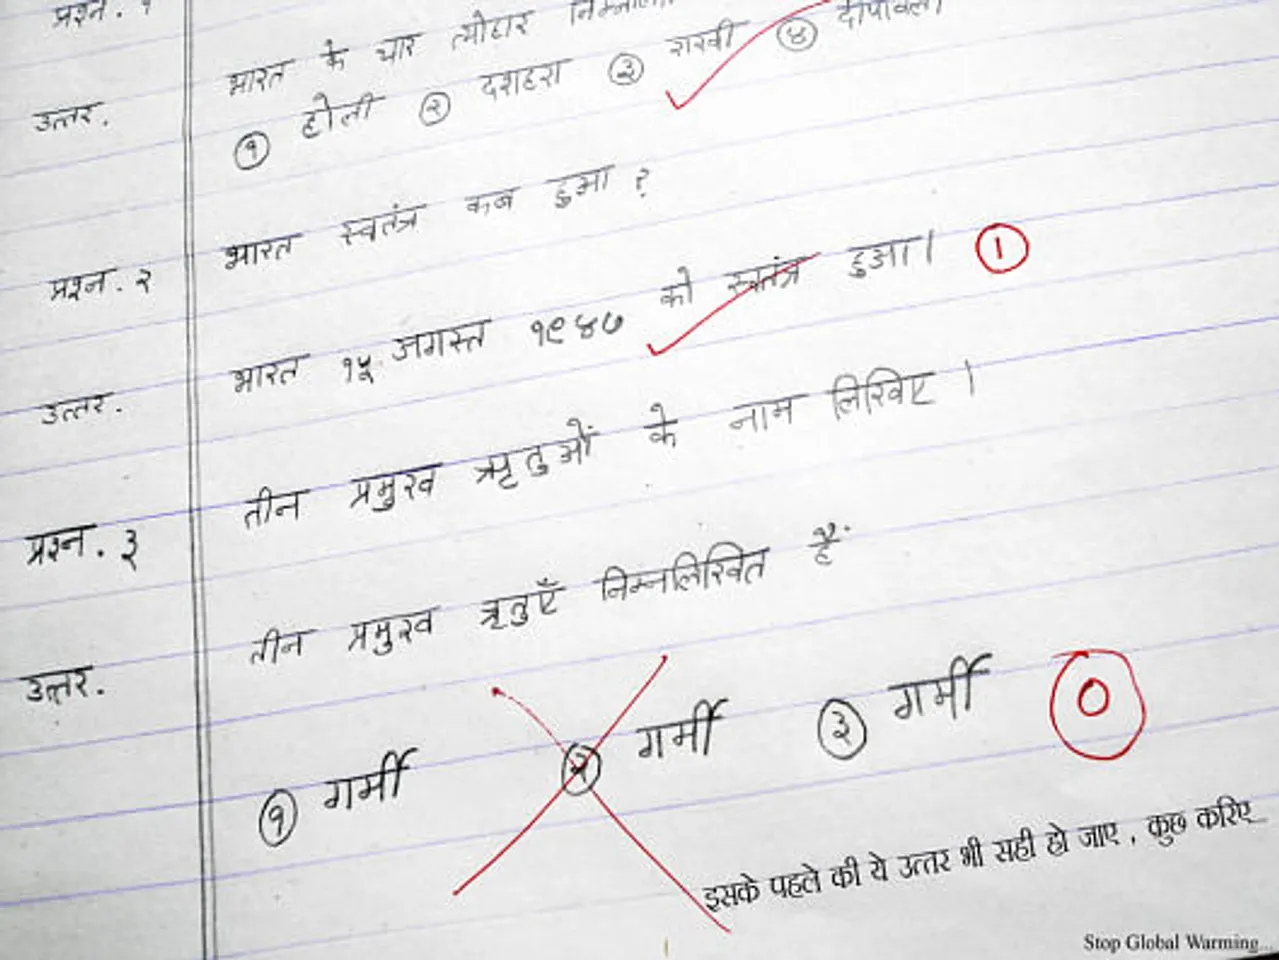 प्रश्न. १
उत्तर. भारत के चार त्योहार
१ होली २ दशहरा ३ राखी ४ दीपावली
प्रश्न. २ भारत स्वतंत्र कब हुआ ?
उत्तर. भारत १५ अगस्त १९४७ को स्वतंत्र हुआ। 1
प्रश्न. ३ तीन प्रमुख ऋतुओं के नाम लिखिए ।
उत्तर. तीन प्रमुख ऋतुएँ निम्नलिखित हैं
१ गर्मी २ गर्मी ३ गर्मी 0
इसके पहले की ये उत्तर भी सही हो जाए , कुछ करिए
Stop Global Warming...